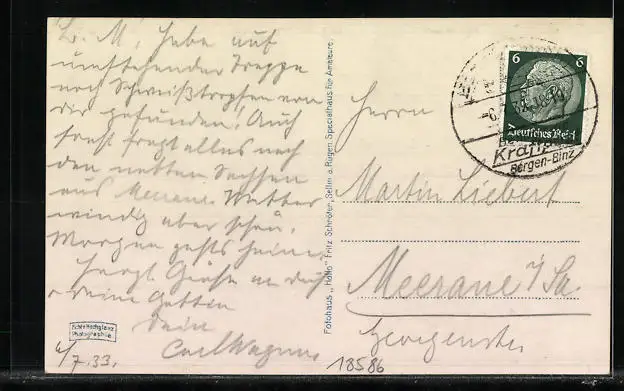 L. M, habe auf
umstehender Treppe
noch Schweißtropfen von
dir gefunden! Auch
sonst fragt alles nach
den netten Sachsen
aus Meerane. Wetter
windig aber schön.
Morgen gehts heim.
Herzl. Grüße an dich
deine Gattin
Dein
Carl Wagner
Echte Hochglanz
Photographie
4/7.33.
Fotohaus „Hallo" Fritz Schröter, Sellin a. Rügen, Spezialhaus für Amateure.
6 6
Deutsches Reich
Bergen-Binz
Herrn
Martin Liebert
Meerane i/Sa.
18586